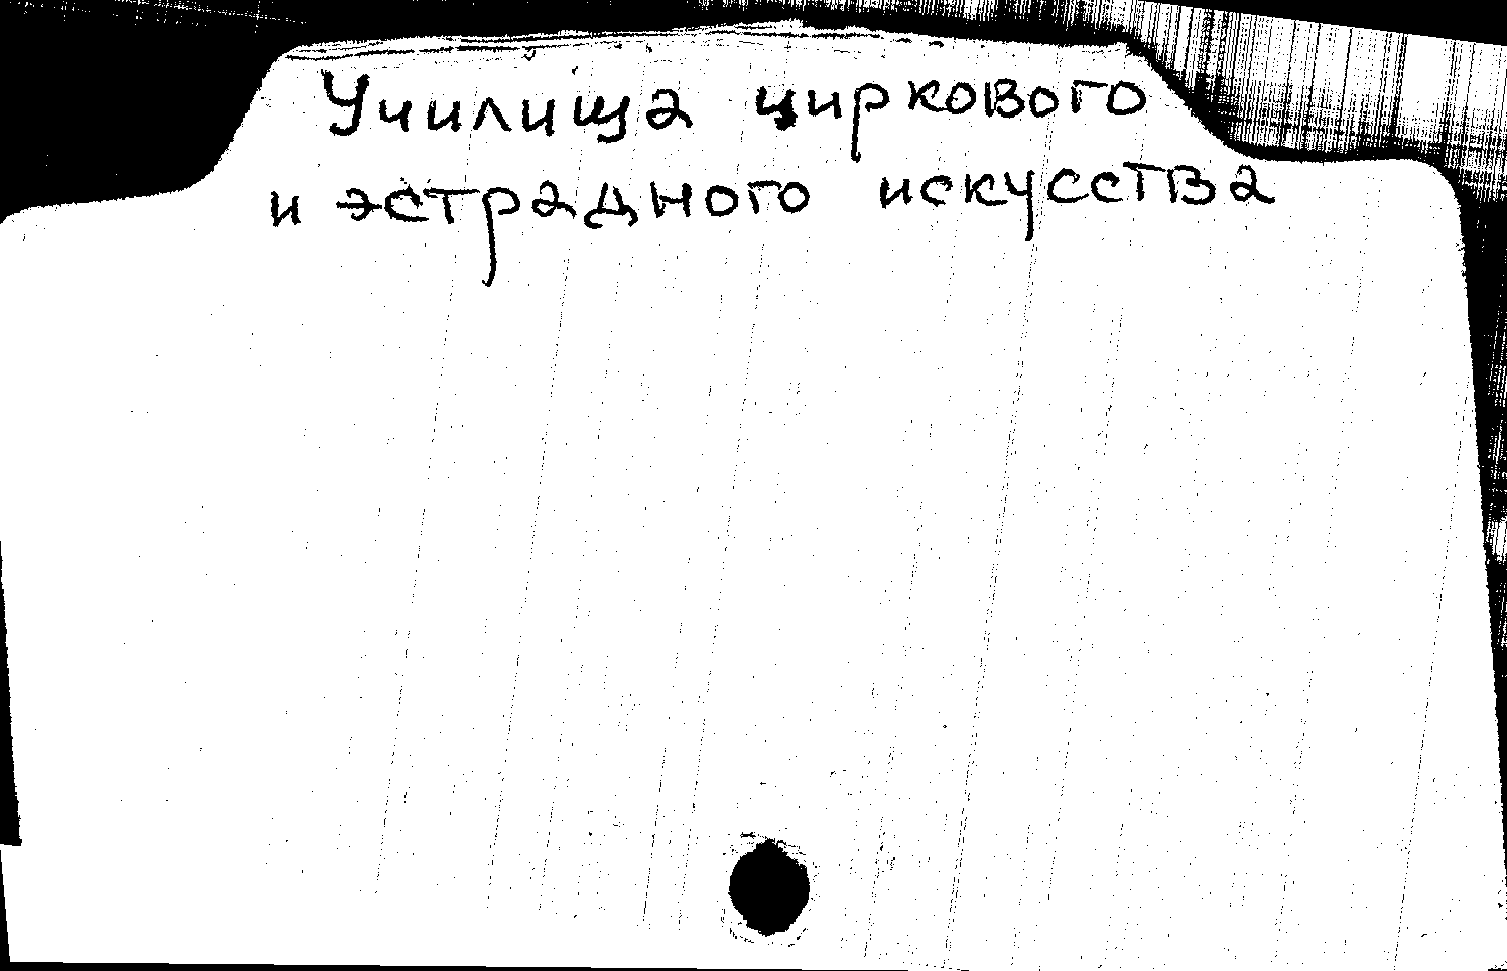 Училища циркового
и эстрадного искусства